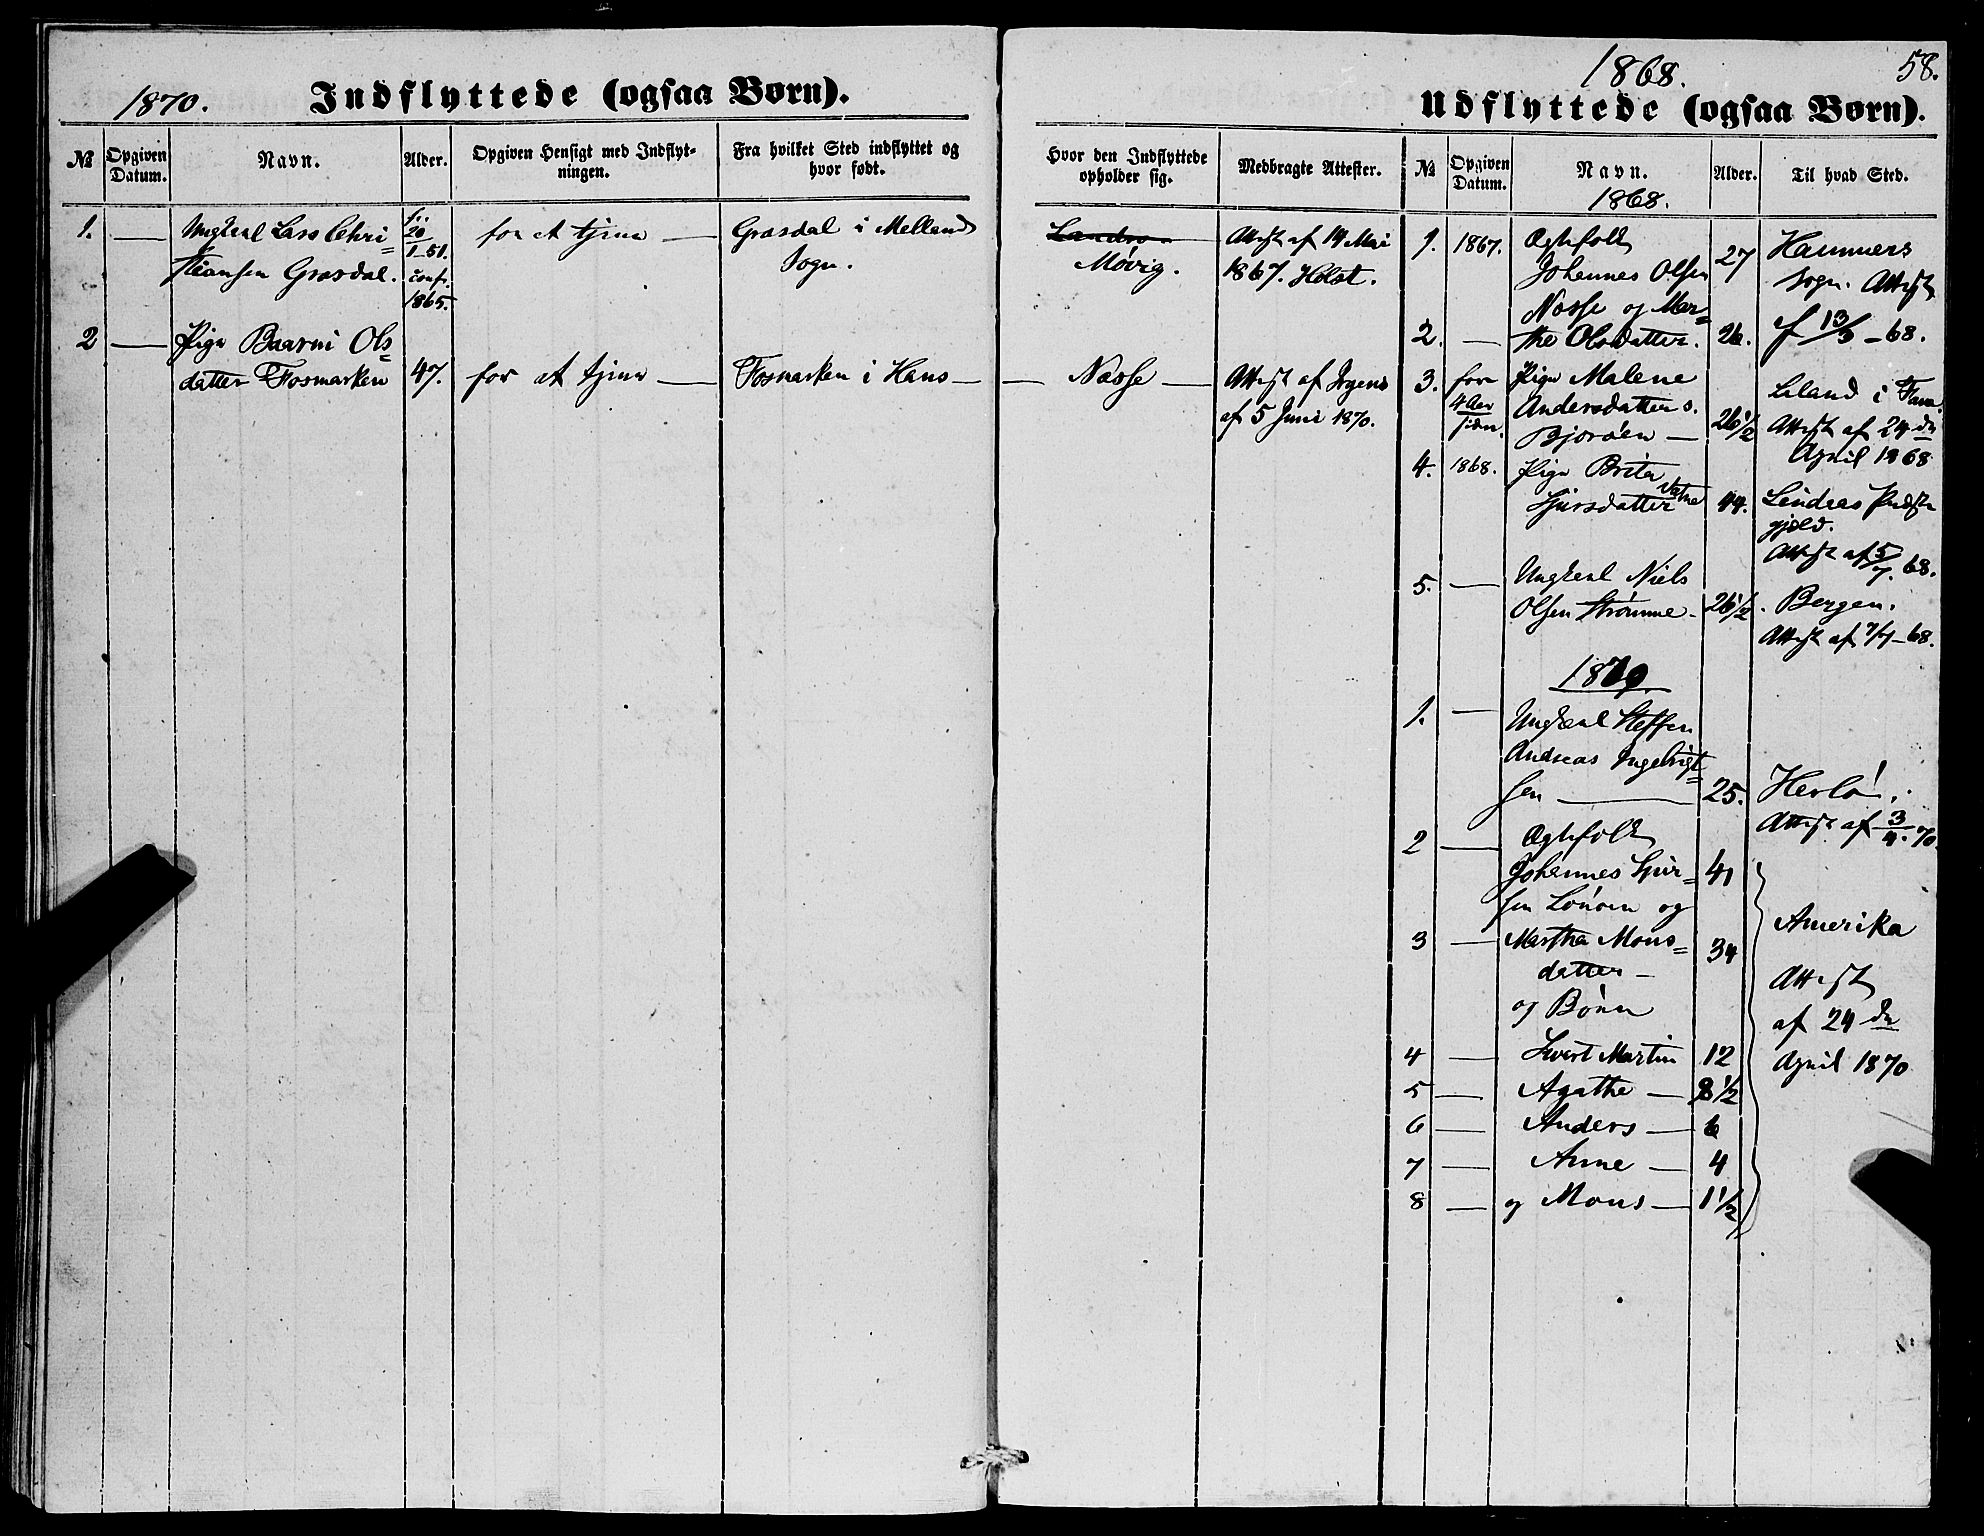 1870. Indflyttede (ogsaa Børn).
№
Opgiven Datum.
Navn.
Alder.
Opgiven Hensigt med Indflytningen.
Fra hvilket Sted indflyttet og hvor født.
1. — Ungkarl Lars Chri=
stiansen Grasdal.
20/1-51.
Conf.
1865.
for at tjene —
Grasdal i Mellands
Sogn.
2 — Pige Baarni Ols=
datter Fosmarken
47.
for at tjene —
Fosmarken i Haus —
58.
1868.
Udflyttede (ogsaa Børn).
Hvor den Indflyttede opholder sig.
Medbragte Attester.
№
Opgiven Datum.
Navn.
Alder.
Til hvad Sted.
Møvig.
Attest af 14 Mai
1867. Holst.
— Næsse —
Attest af
af 5 Juni 1870.
1868.
1. 1867. Ægtefolk
Johannes Olsen 27
Næsse og Mar=
2. — the Olsdatter. 26.
Hammers
Sogn. Attest
13/ - 68.
3. for
4 Aar
siden.
Pige Malene
Andersdatter
Bjorøen — 26 1/2
i Fana.
Attest af 24 de
April 1868
4. 1868. Pige Brita
Sjursdatter Vatne 44.
Lindaas Præste
gjeld.
Attest af 5/7. 68.
5. — Ungkarl Niels
Olsen Strømme - 26 1/2.
Bergen.
Attest af 7/7-68.
1870.
1. — Ungkarl Steffen
Andreas Ingebrigt=
sen — 25.
Herlø.
Attest af 3/4. 70.
2 — Ægtefolk
Johannes Sjur= 41
sen Lønøen og
3 — Martha Mons= 34
datter —
og Børn
4 — Sivert Martin 12
5 — Agathe — 8 1/2
6 — Anders — 6
7 — Anne — 4
8 — og Mons — 1 1/2
Amerika
Attest
af 24 de
April 1870